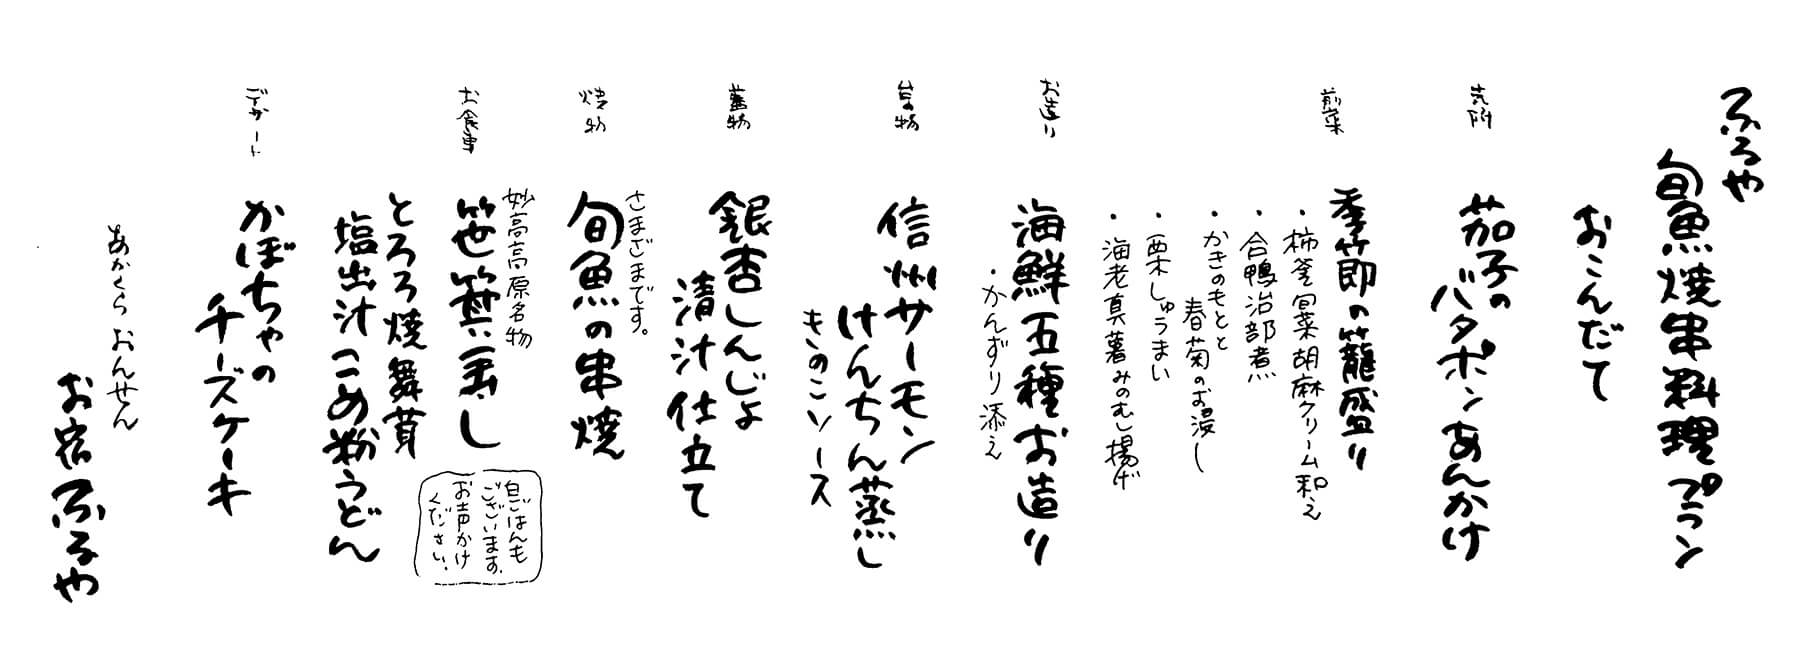 ふるや
旬魚焼串料理プラン
おこんだて
先附
茄子の
バタポンあんかけ
前菜
季節の籠盛り
・柿釜旬菜胡麻クリーム和え
・合鴨治部煮
・かきのもとと
春菊のお浸し
・栗しゅうまい
・海老真薯みのむし揚げ
お造り
海鮮五種お造り
・かんずり添え
台物
信州サーモン
けんちん蒸し
きのこソース
蓋物
銀杏しんじょ
清汁仕立て
焼物
さまざまです。
旬魚の串焼
お食事
妙高高原名物
笹箕蒸し
とろろ焼舞茸
塩出汁こめ粉うどん
白ごはんも
ございます。
お声かけ
ください。
デザート
かぼちゃの
チーズケーキ
あかくらおんせん
お宿ふるや